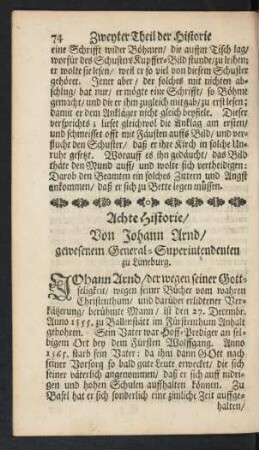 74 Zweyter Theil der Historie
eine Schrifft wider Böhmen/ die auffm Tisch lag/
worfür des Schusters Kupffer-Bild stunde/ zu leihen;
er wolte sie lesen/ weil er so viel von diesem Schuster
gehöret. Jener aber/ der solches mit nichten ab-
schlug/ bat nur/ er mögte eine Schrifft/ so Böhme
gemacht/ und die er ihm zugleich mitgab/ zu erst lesen;
damit er dem Ankläger nicht gleich beyfiele. Dieser
versprichts; lieset gleichwol die Anklag am ersten/
und schmeisset offt mit Fäusten auffs Bild/ und ver-
flucht den Schuster/ daß er ihre Kirch in solche Un-
ruhe gesetzt. Worauff es ihn gedäucht/ das Bild
thäte den Mund auff/ und wolte sich vertheidigen:
Darob den Beamten ein solches Zittern und Angst
ankommen/ daß er sich zu Bette legen müssen.
Achte Historie/
Von Johann Arnd/
gewesenem General-Superintendenten
zu Lüneburg.
JOhann Arnd/ der wegen seiner Gott-
seligkeit/ wegen seiner Bücher vom wahren
Christenthum/ und darüber erlidtener Ver-
kätzerung/ berühmte Mann/ ist den 27. Decembr.
Anno 1555. zu Ballenstätt im Fürstenthum Anhalt
gebohren. Sein Vater war Hoff-Prediger an sel-
bigem Ort bey dem Fürsten Wolffgang. Anno
1565. starb sein Vater: da ihm dann GOtt nach
seiner Vorsorg so bald gute Leute erwecket/ die sich
seiner väterlich angenommen/ daß er sich auff nidri-
gen und hohen Schulen auffhalten können. Zu
Basel hat er sich sonderlich eine zimliche Zeit auffge-
halten/